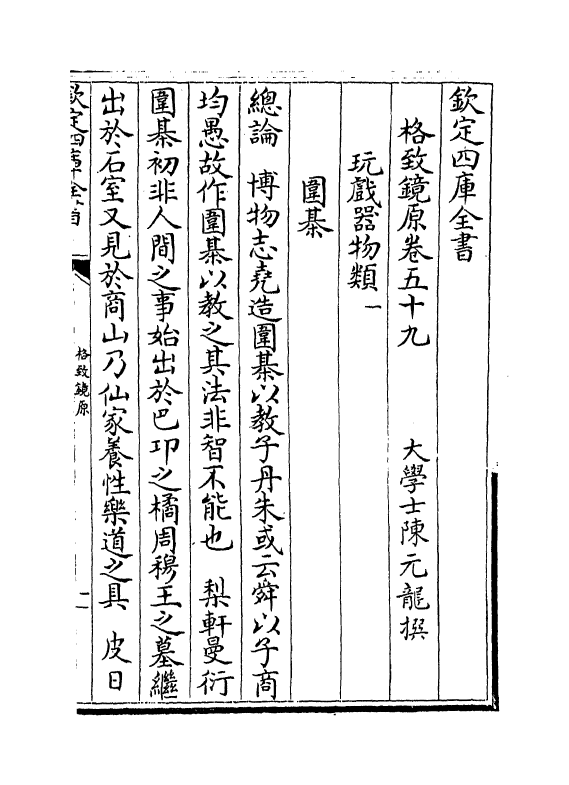 欽定四庫全書
格致鏡原卷五十九 大學士陳元龍撰
玩戲器物類一
圍棊
總論 博物志堯造圍棊以教子丹朱或云舜以子商
均愚故作圍棊以教之其法非智不能也 梨軒曼衍
圍棊初非人間之事始出於巴邛之橘周穆王之墓繼
出於石室又見於商山乃仙家養性樂道之具 皮日
欽定四庫全書
格致鏡原